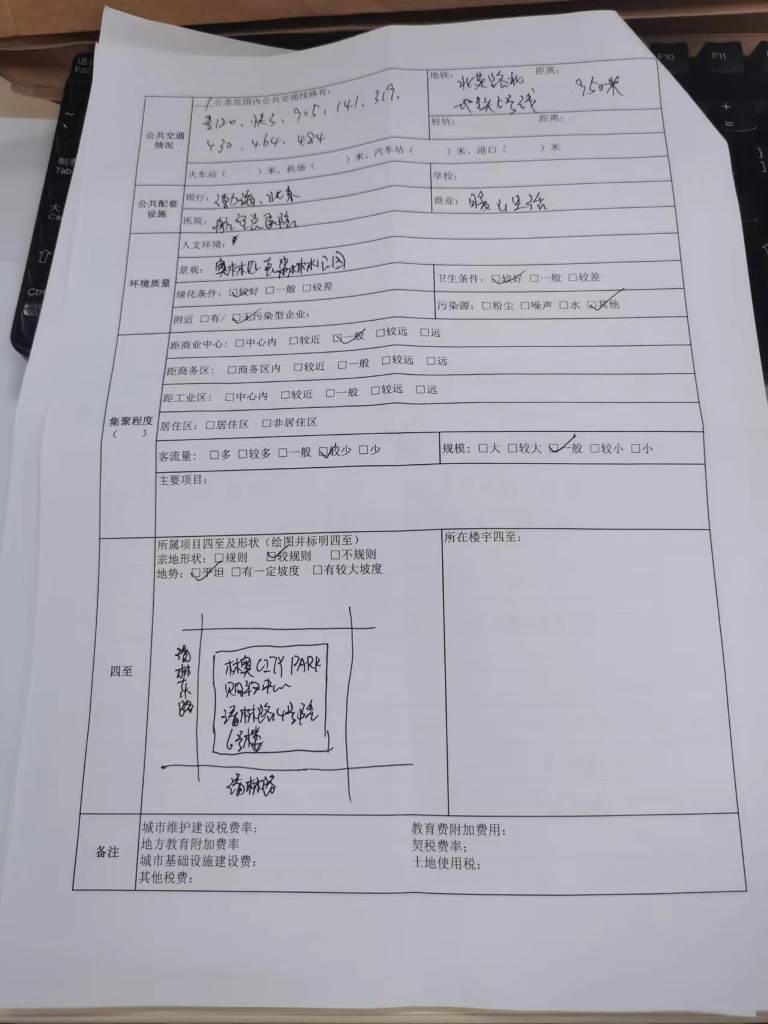 公共交通情况
1公里范围内公共交通线路有:
120、快3、905、141、319、
430、464、484
地铁: 北苑路北 距离: 950米
地铁5号线
轻轨: 距离:
火车站( )米、机场( )米、汽车站( )米、港口( )米
公共配套设施
银行: 北京
学校:
医院: 航空总医院
商业: 生活
环境质量
人文环境:
景观: 奥林匹克森林公园
绿化条件: ☑较好 □一般 □较差
卫生条件: ☑较好 □一般 □较差
附近 □有/ ☑无污染型企业:
污染源: □粉尘 □噪声 □水 ☑其他
集聚程度
( )
距商业中心: □中心内 □较近 ☑一般 □较远 □远
距商务区: □商务区内 □较近 □一般 □较远 □远
距工业区: □中心内 □较近 □一般 □较远 □远
居住区: □居住区 □非居住区
客流量: □多 □较多 □一般 ☑较少 □少
规模: □大 □较大 ☑一般 □较小 □小
主要项目:
四至
所属项目四至及形状(绘图并标明四至)
宗地形状: □规则 ☑较规则 □不规则
地势: ☑平坦 □有一定坡度 □有较大坡度
所在楼宇四至:
清林东路
林奥CITY PARK
购物中心
清林路4号院
6号楼
清林路
备注
城市维护建设税费率:
教育费附加费用:
地方教育附加费率
契税费率:
城市基础设施建设费:
土地使用税:
其他税费:
F10
F11
Tab
Ctrl
Esc